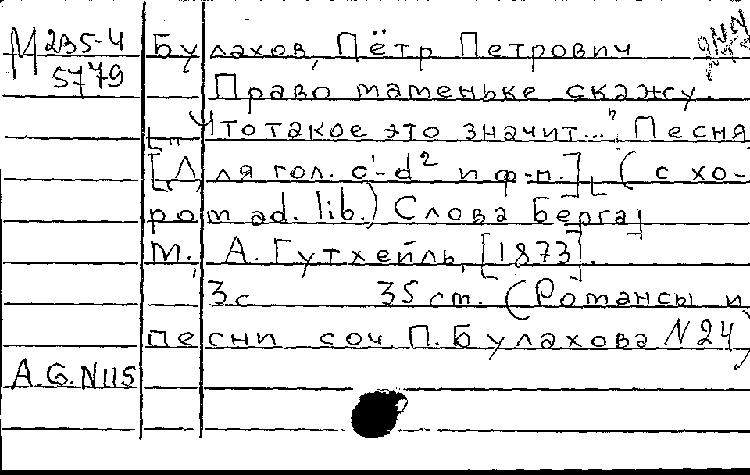 М 235-4
5779
Булахов, Пётр Петрович
Право маменьке скажу.
"Что такое это значит..." Песня
[Для гол. c¹-d² и ф-п.], (с хо-
ром ad. lib.) Слова Берга
М., А. Гутхейль, [1873].
3с 35 ст. (Романсы и
песни соч. П. Булахова N 24)
A.G.N115